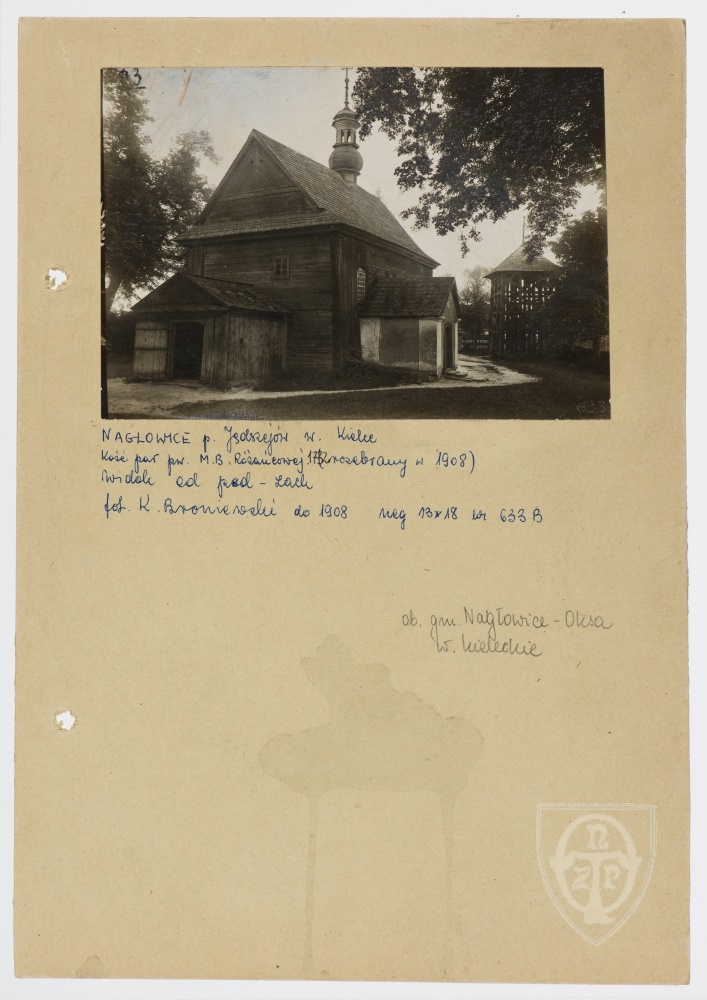 93
NAGŁOWICE p. Jędrzejów w. Kielce
Kość par pw. M.B. Różańcowej rozebrany w 1908)
Widok od pod - zach
fot. K. Broniewski do 1908 neg 13x18 nr 633 B
ob. gm. Nagłowice - Oksa
w. kieleckie
TOnZP